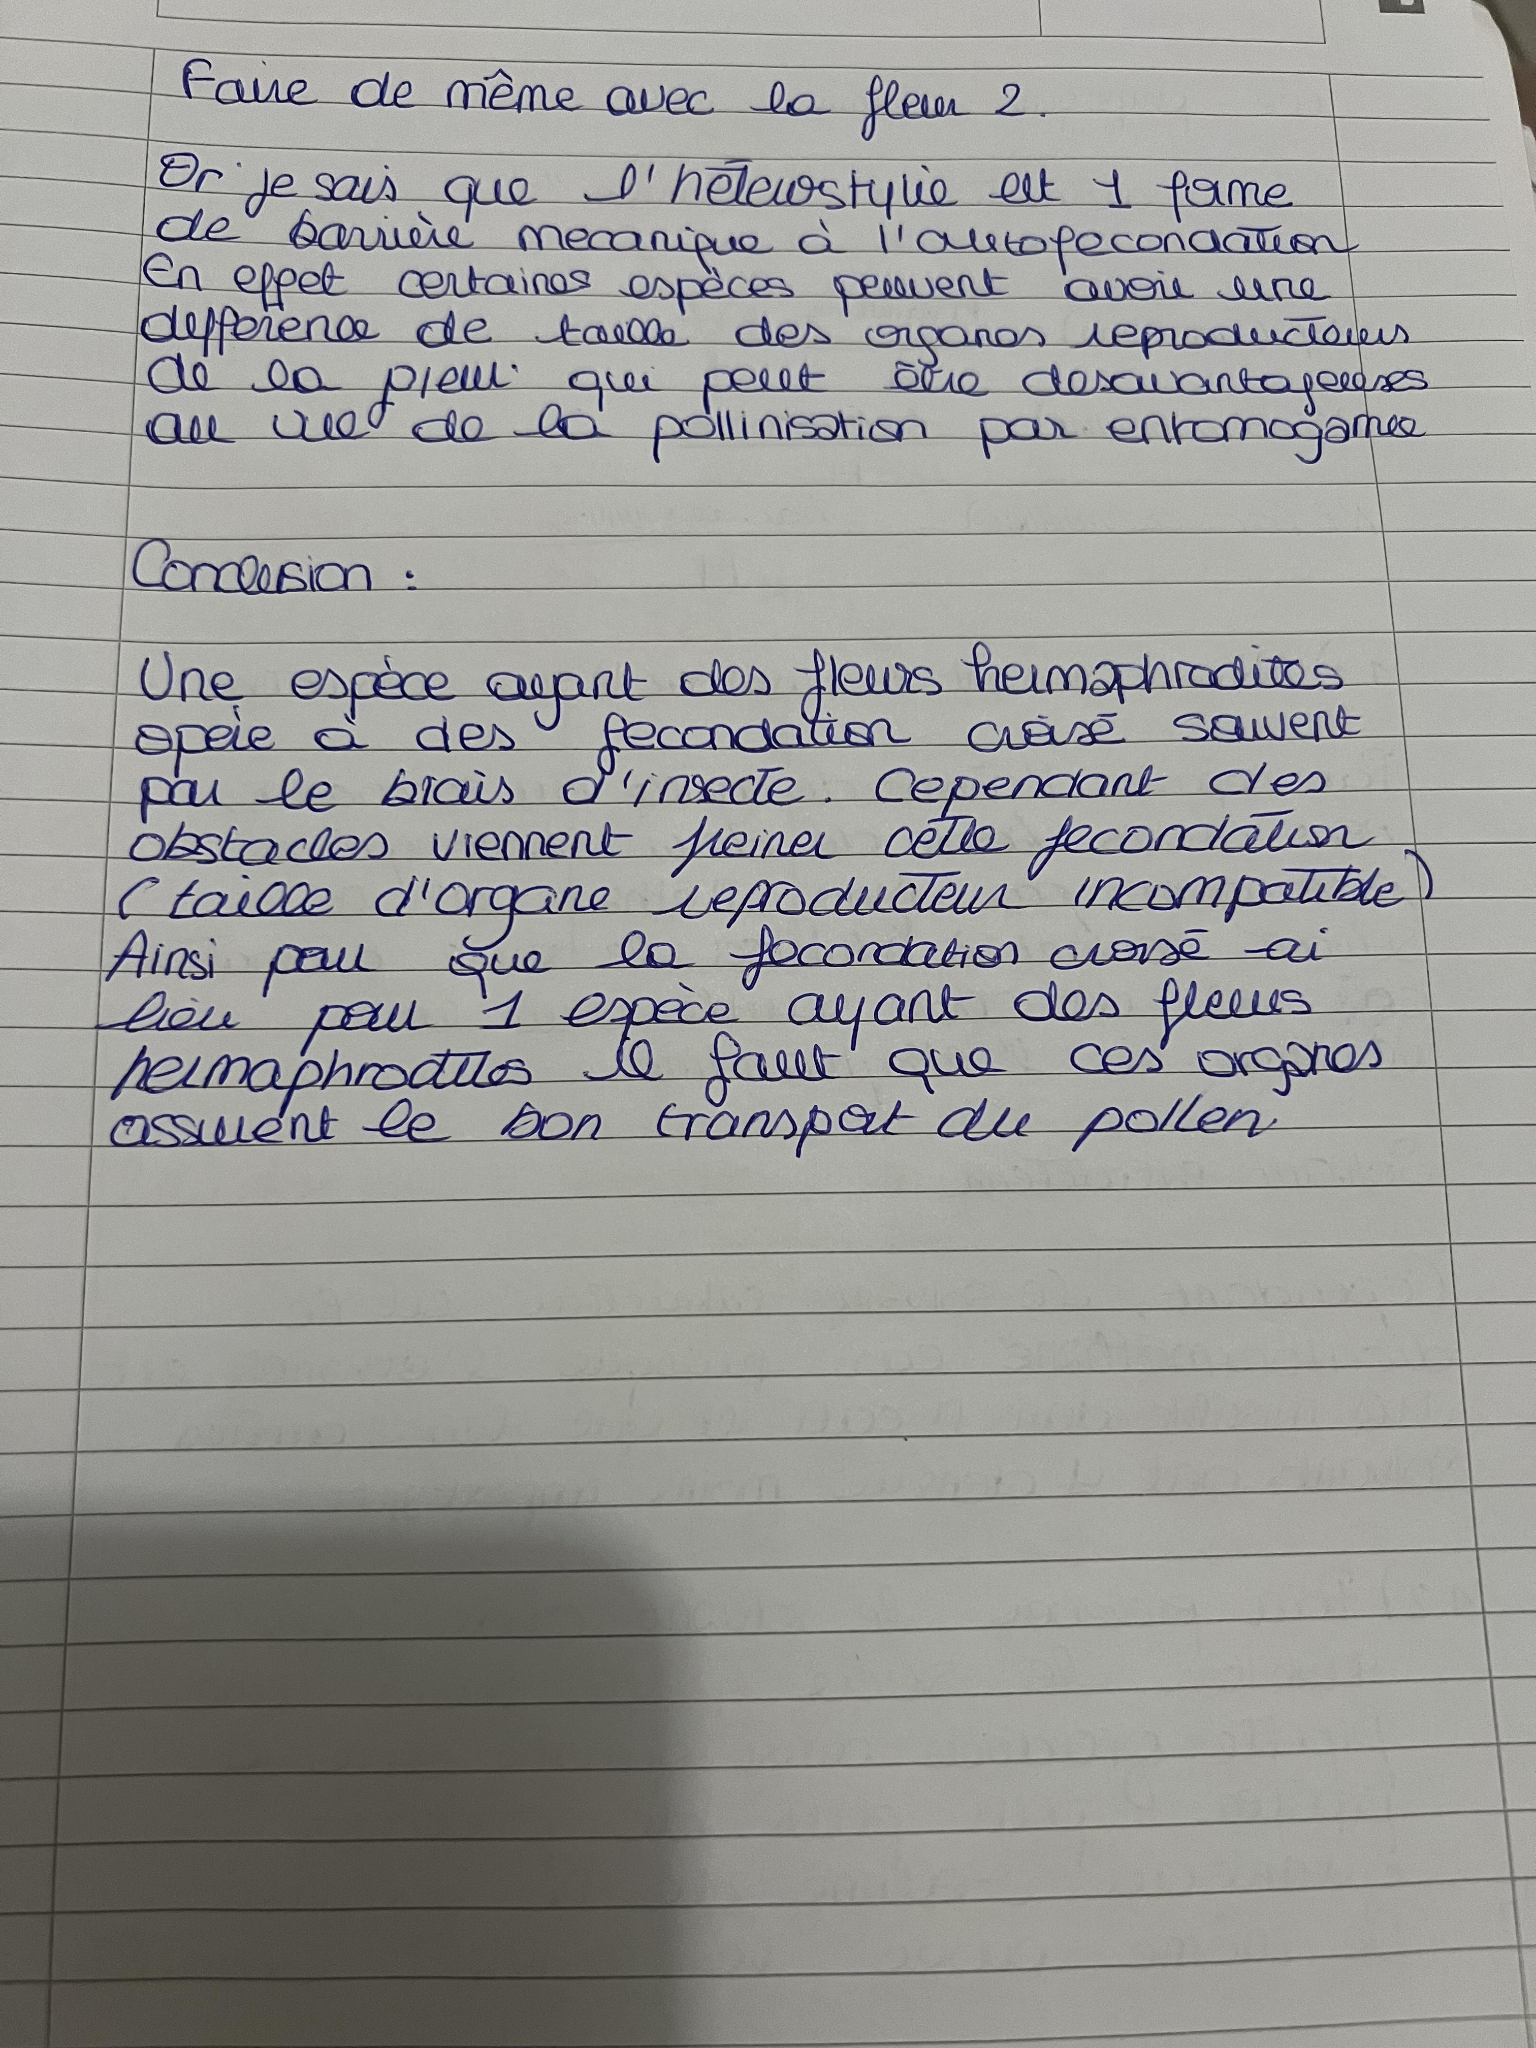 Faire de même avec la fleur 2.
Or je sais que l'hétérostylie est 1 forme
de barrière mecanique à l'autofecondation
En effet certaines espèces peuvent avoir une
defférence de taille des organes reproducteurs
de la fleur qui peut être desavantageuses
au vue de la pollinisation par entomogamie
Conclusion :
Une espèce ayant des fleurs hermaphrodites
opère à des fecondation croisé souvent
par le biais d'insecte. Cependant des
obstacles viennent freiner cette fecondation
(taille d'organe reproducteur incompatible)
Ainsi pour que la fecondation croisé ai
lieu pour 1 espèce ayant des fleurs
hermaphrodites il faut que ces organes
assurent le bon transport du pollen